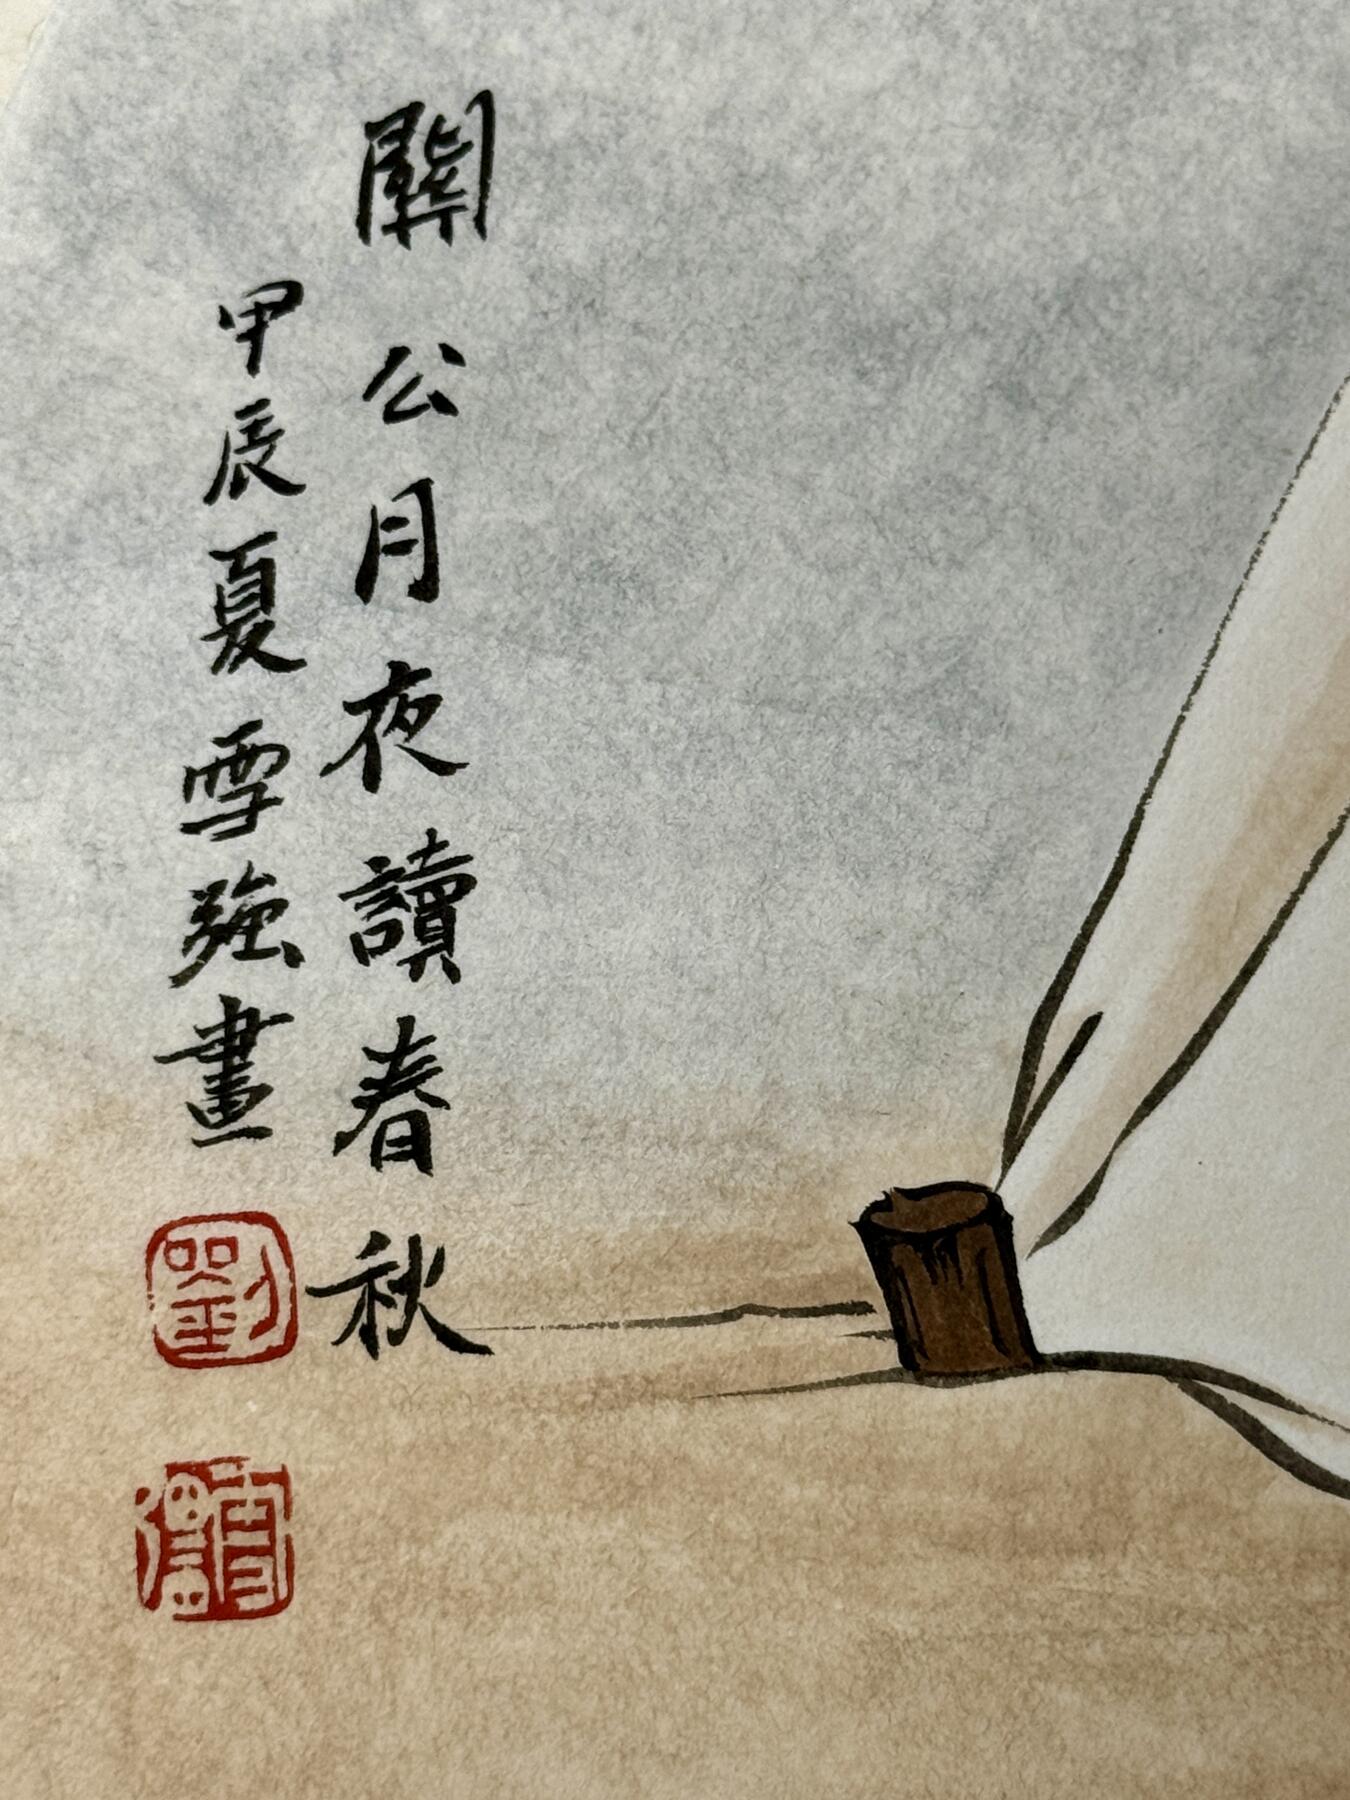 關公月夜讀春秋
甲辰夏雪強畫
劉